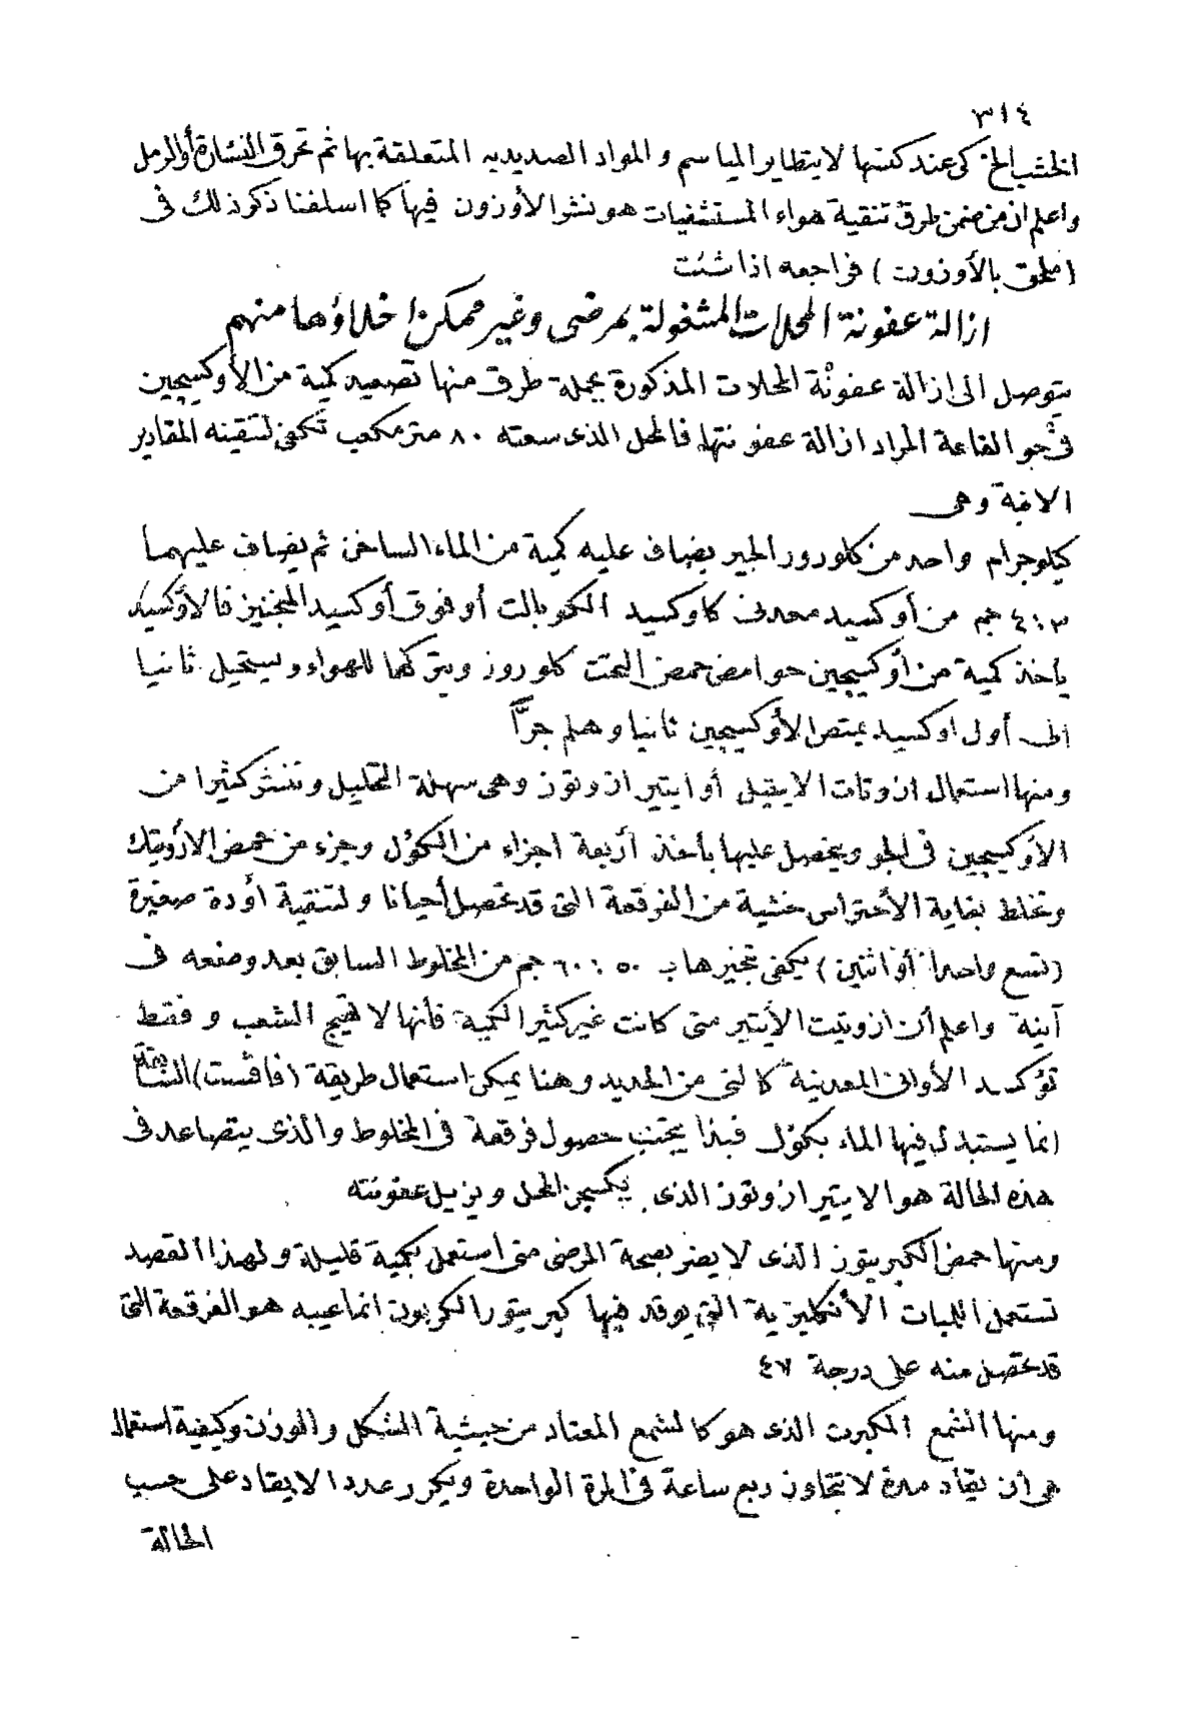 ٣١٤
الخشب الخ كى عند كنسها لا يتطاير المياسم والمواد الصديديه المتعلقة بها ثم تحرق النشارة أو الرمل
واعلم ان من ضمن طرق تنقية هواء المستشفيات هو نشر الأوزون فيها كما اسلفنا ذكر ذلك فى
(ملحق بالأوزون) فراجعه اذا شئت
ازالة عفونة المحلات المشغولة بمرضى وغير ممكن اخلاؤها منهم
يتوصل الى ازالة عفونة المحلات المذكورة بجملة طرق منها تصعيد كمية من الأوكسيجين
فى جو القاعة المراد ازالة عفونتها فالمحل الذى سعته ٨٠ متر مكعب تكفى لتنقيته المقادير
الاتية وهى
كيلوجرام واحد من كلورور الجير يضاف عليه كمية من الماء الساخن ثم يضاف عليهما
٣ : ٤ جم من أوكسيد معدنى كاوكسيد الكوبالت أو فوق أوكسيد المنجنيز فالأوكسيد
ياخذ كمية من أوكسيجين حوامض حمض التحت كلوروز ويتركها للهواء ويستحيل ثانيا
الى أول اوكسيد يمتص الأوكسيجين ثانيا وهلم جرّا
ومنها استعمال ازوتات الايتيل أو ايتير ازوتوز وهى سهلة التحليل وتنشر كثيرا من
الأوكسيجين فى الجو ويتحصل عليها بأخذ أربعة اجزاء من الكؤل وجزء من حمض الأزوتيك
وتخلط بغاية الأحتراس خشية من الفرقعة التى قد تحصل أحيانا ولتنقية اؤدة صغيرة
(تسع واحدا أو اثنين) يكفى تبخيرها ب ٥٠ : ٦٠ جم من المخلوط السابق بعد وضعه فى
آنية واعلم أن ازوتيت الأيتير متى كانت غير كثير الكمية فأنها لا تهيج الشعب وفقط
تؤكسد الأوانى المعدنية كالتى من الحديد وهنا يمكن استعمال طريقة (فافست) السابقة
انما يستبدل فيها الماء بكؤل فبذا يجتنب حصول فرقعة فى المخلوط والذى يتصاعد فى
هذه الحالة هو الايتير ازوتوز الذى يكسجن المحل ويزيل عفونته
ومنها حمض الكبريتوز الذى لا يضر بصحة المرضى متى استعمل بكمية قليلة ولهذا القصد
تستعمل اللمبات الأنكليزية التى يوقد فيها كبريتور الكربون انما عيبه هو الفرقعة التى
قد تحصل منه على درجة ٤٧
ومنها الشمع المكبرت الذى هو كالشمع المعتاد من حيثية الشكل والوزن وكيفية استعماله
هى أن يقاد مدة لا تتجاوز ربع ساعة فى المرة الواحدة ويكرر عدد الايقاد على حسب
الحالة